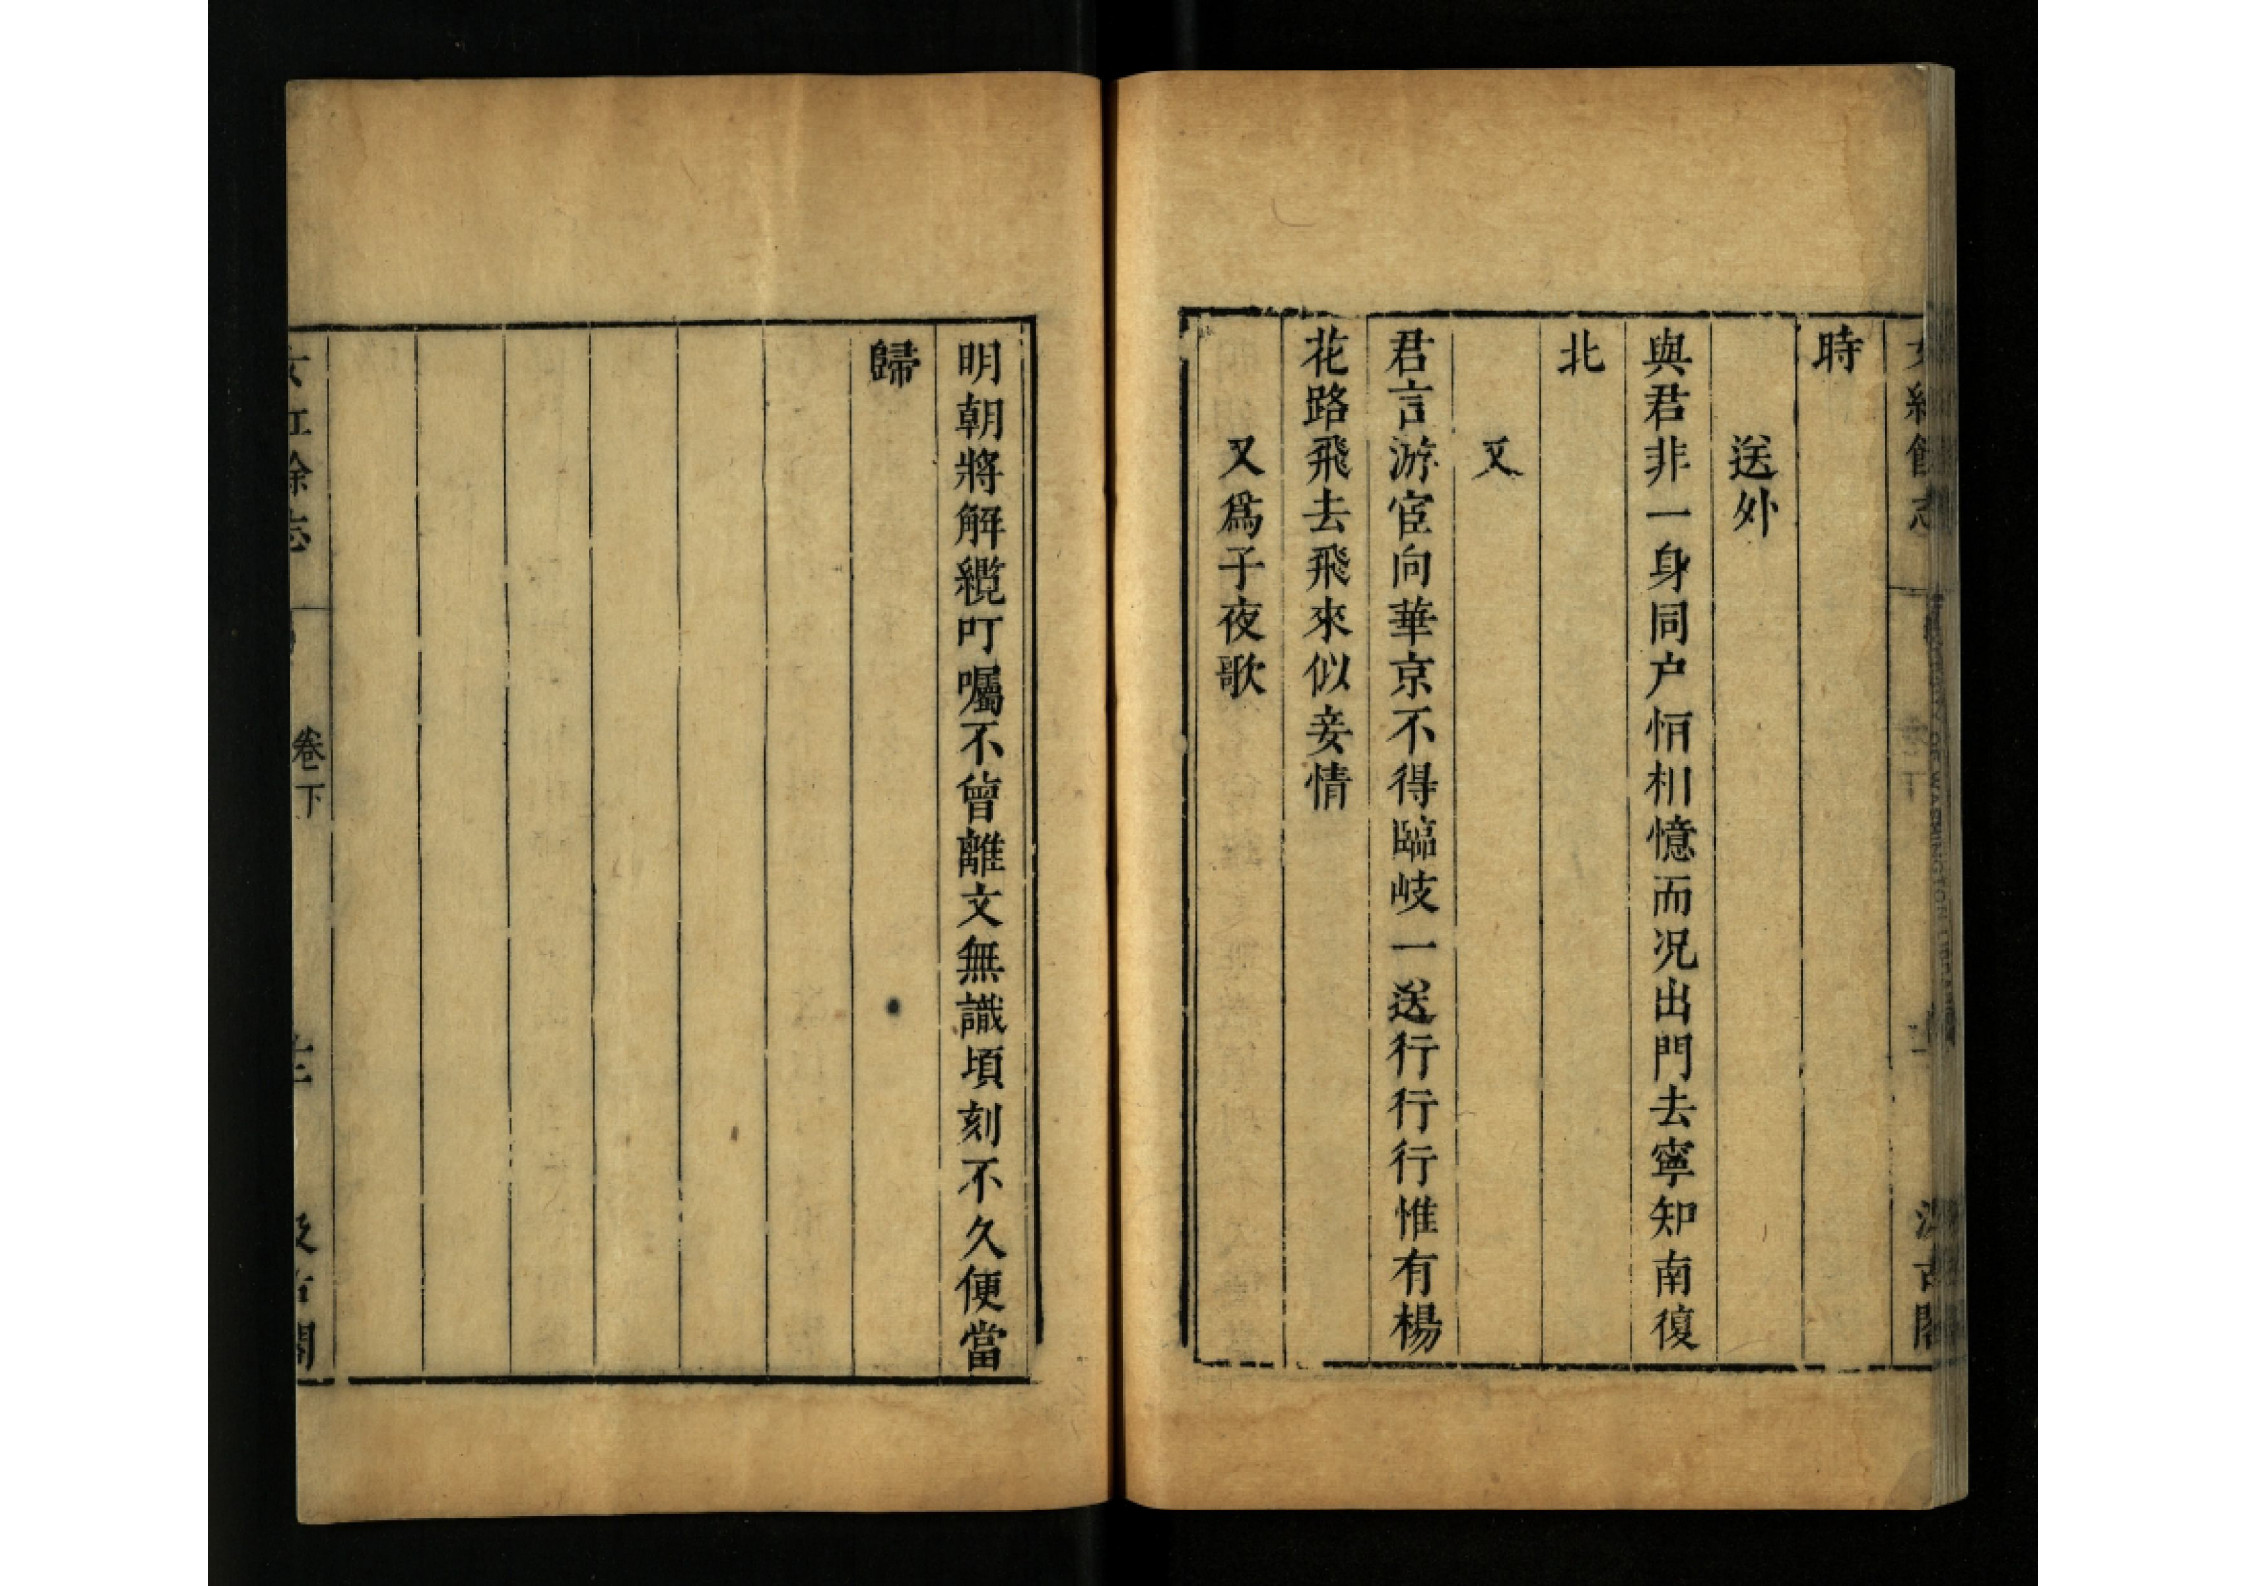 時
送外
與君非一身同户恒相憶而况出門去寧知南復
北
又
君言游宦向華京不得臨岐一送行行行惟有楊
花路飛去飛來似妾情
又爲子夜歌
明朝將解纜叮囑不曾離文無識頃刻不久便當
歸
卷下